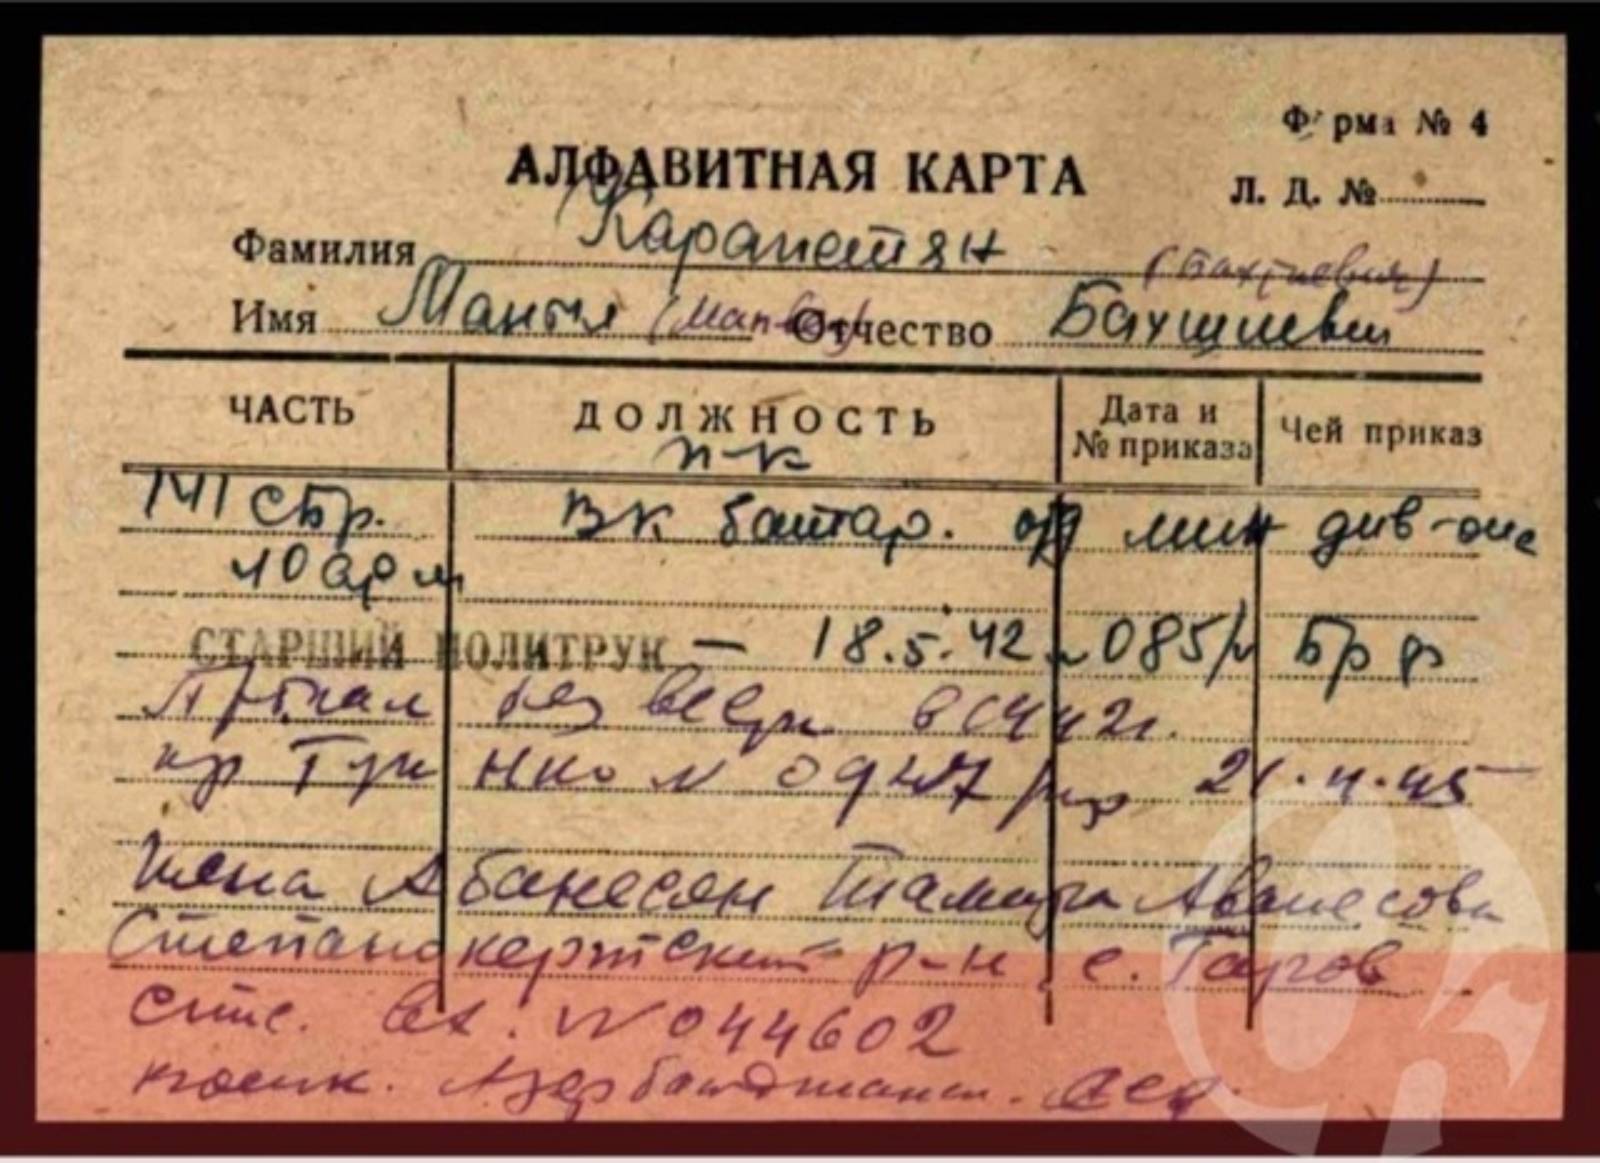 Форма № 4
АЛФАВИТНАЯ КАРТА
Л. Д. №
Фамилия Карапетян
Имя Отчество Бахшиевич
ЧАСТЬ ДОЛЖНОСТЬ Дата и № приказа Чей приказ
п-к
141 сбр. ВК батар. отд мин див-она
10 арм
СТАРШИЙ ПОЛИТРУК — 18.5.42 085/н
Пропал без вести в 42г.
пр ГУК НКО № /пр 21.4.45
жена Аванесян Тамара Аванесовн
Степанакертский р-н с.
вх. № 044602
Азербайджан. сср.